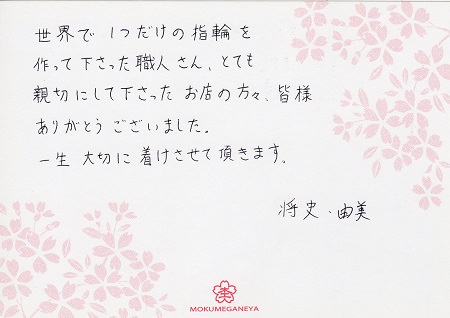 世界で 1つだけの指輪を
作って下さった職人さん、とても
親切にして下さった お店の方々、皆様
ありがとう ございました。
一生 大切に 着けさせて 頂きます。
将史・由美
MOKUMEGANEYA